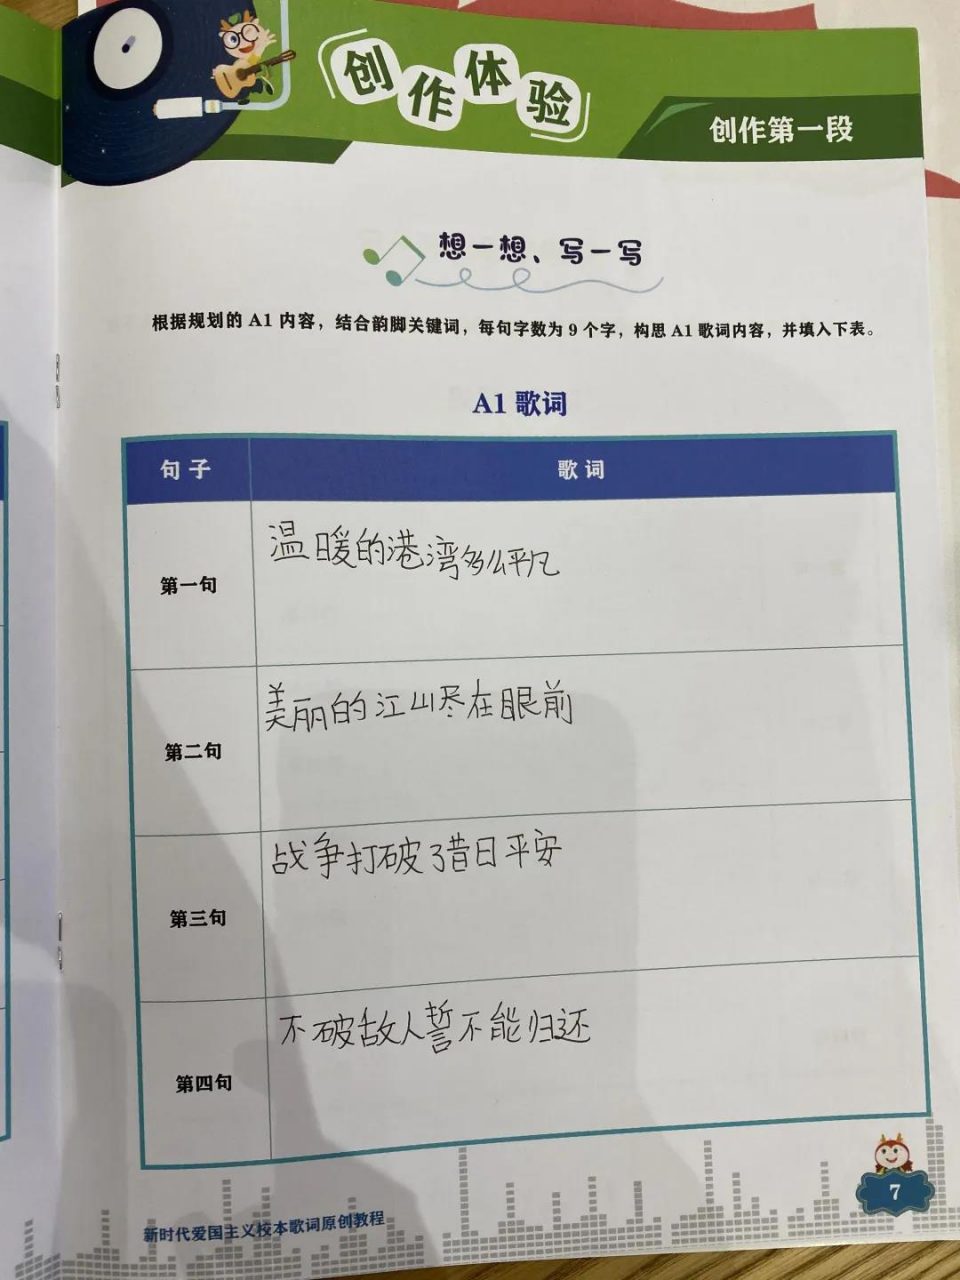 创作体验
创作第一段
想一想、写一写
根据规划的 A1 内容，结合韵脚关键词，每句字数为 9 个字，构思 A1 歌词内容，并填入下表。
A1 歌词
句子 歌词
第一句 温暖的港湾多么平凡
第二句 美丽的江山尽在眼前
第三句 战争打破了昔日平安
第四句 不破敌人誓不能归还
7
新时代爱国主义校本歌词原创教程